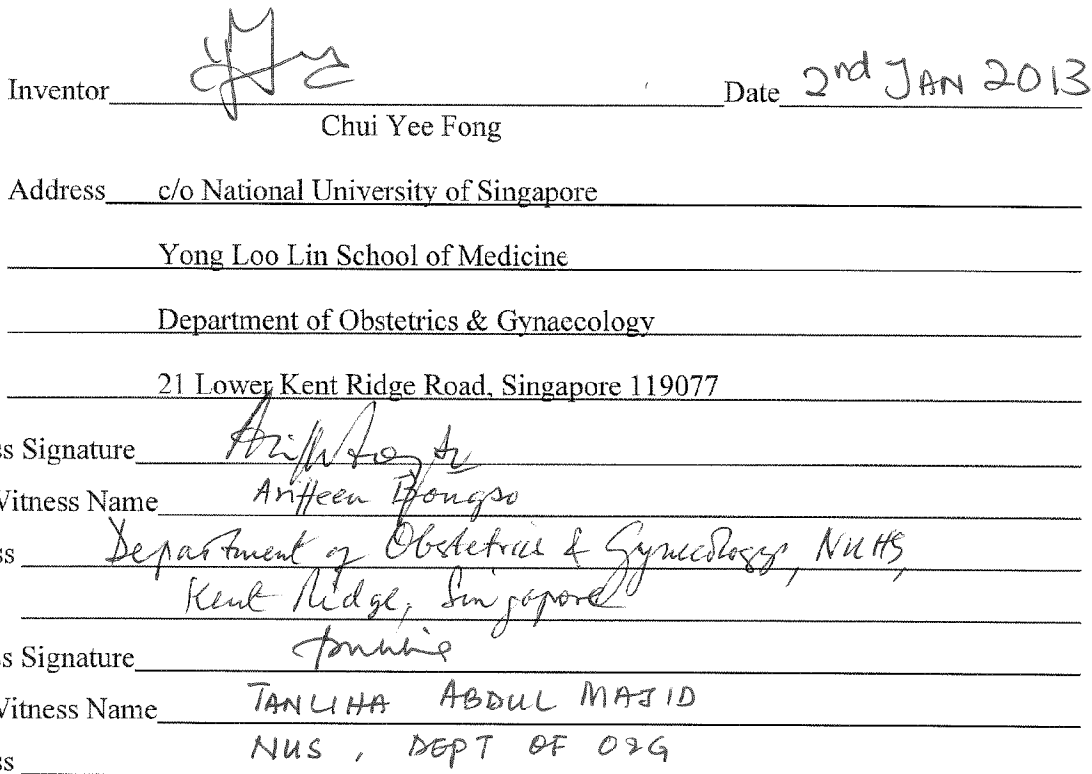 Inventor Date 2nd JAN 2013
Chui Yee Fong
Address c/o National University of Singapore
Yong Loo Lin School of Medicine
Department of Obstetrics & Gynaecology
21 Lower Kent Ridge Road, Singapore 119077
ss Signature
Witness Name Ariffeen Bongso
ss Department of Obstetrics & Gynecology, NUHS,
Kent Ridge, Singapore
ss Signature
Witness Name TANLIHA ABDUL MAJID
ss NUS, DEPT OF O&G